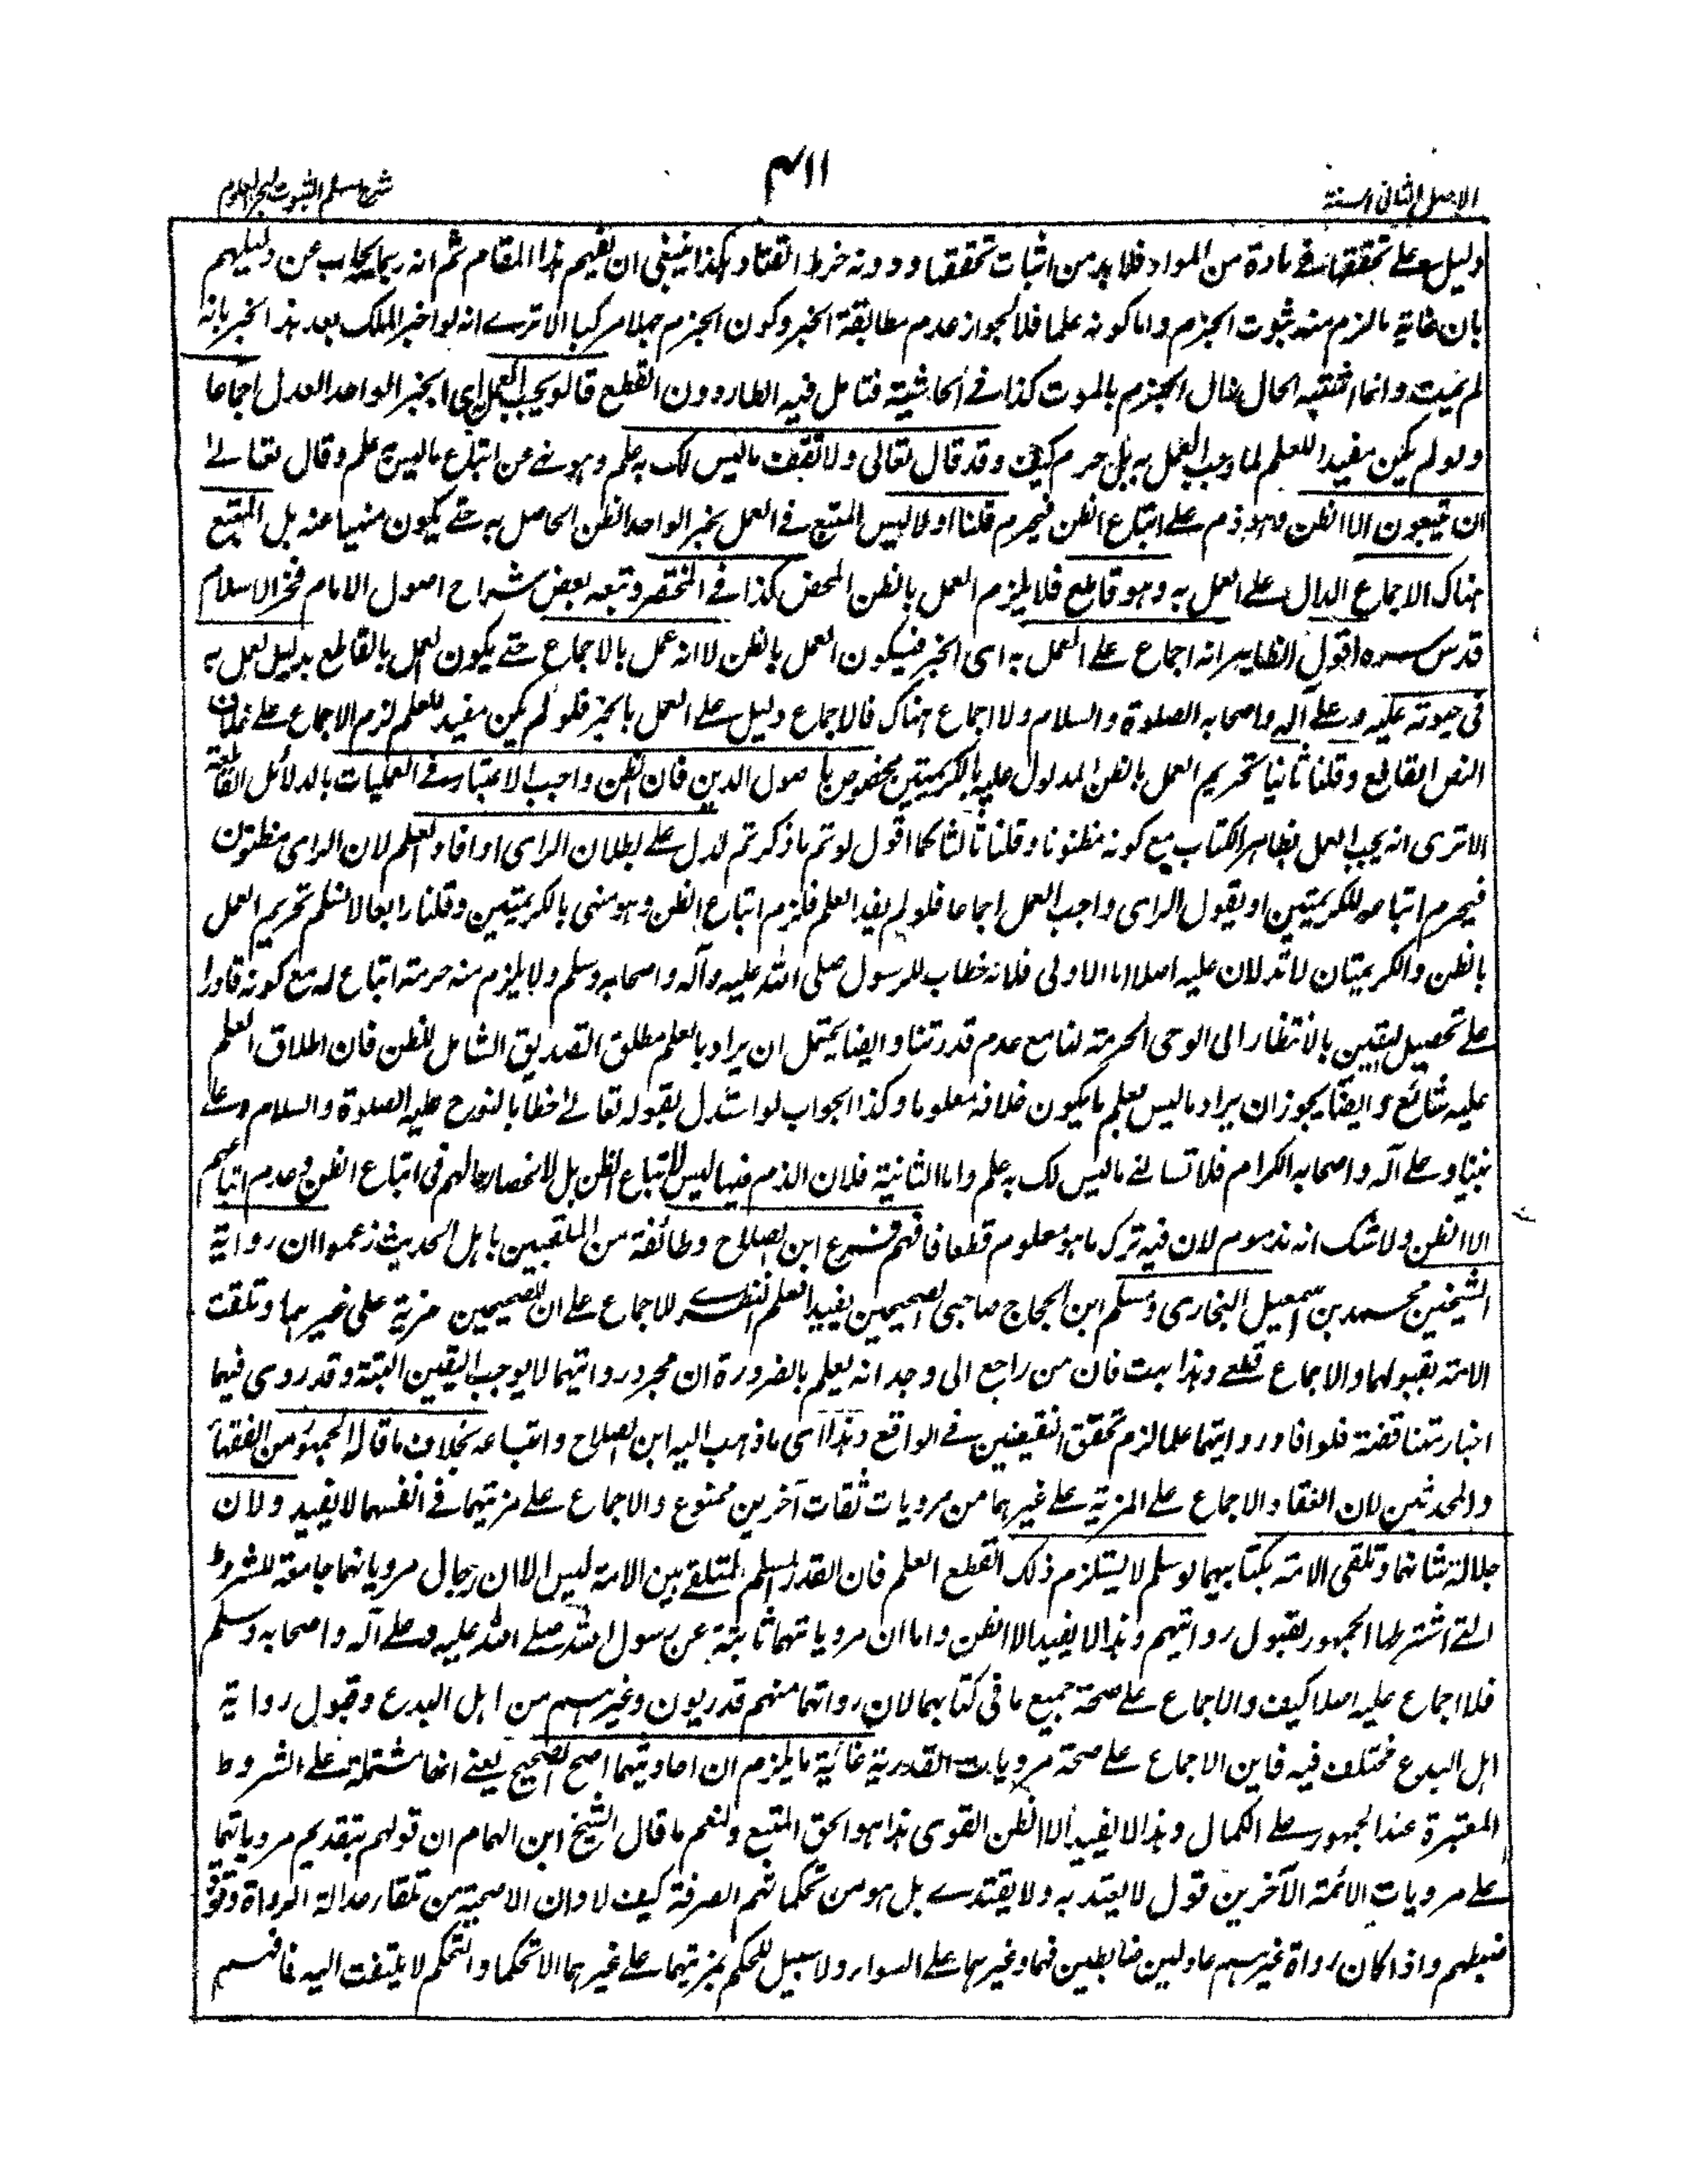 الاصل الثانى السنة
٤١١
شرح مسلم الثبوت لبحر العلوم
دليل على تحققها فى مادة من المواد فلا بد من اثبات تحققها ودونه خرط القتاد وهكذا ينبغى ان يفهم هذا المقام ثم انه ربما يجاب عن دليلهم
بان غاية ما لزم منه ثبوت الجزم واما كونه علما فلا لجواز عدم مطابقة الخبر وكون الجزم جهلا مركبا الا ترى انه لو اخبر الملك بعد هذا الخبر بانه
لم يمت وانما اشتبه الحال لزال الجزم بالموت كذا فى الحاشية فتامل فيه الطاردون القطع قالوا يجب العمل اى بخبر الواحد العدل اجماعا
ولو لم يكن مفيدا للعلم لما وجب العمل به بل حرم كيف وقد قال تعالى ولا تقف ما ليس لك به علم وهو نهى عن اتباع ما ليس به علم وقال تعالى
ان يتبعون الا الظن وهو ذم على اتباع الظن فيحرم قلنا اولا ليس المتبع فى العمل بخبر الواحد الظن الحاصل به حتى يكون منهيا عنه بل المتبع
هناك الاجماع الدال على العمل به وهو قاطع فلا يلزم العمل بالظن المحض كذا فى المختصر وتبعه بعض شراح اصول الامام فخر الاسلام
قدس سره اقول الظاهر انه اجماع على العمل به اى الخبر فيكون العمل بالظن لا انه عمل بالاجماع حتى يكون العمل بالقاطع بدليل العمل به
فى حيوته عليه وعلى آله واصحابه الصلوة والسلام ولا اجماع هناك فالاجماع دليل على العمل بالخبر فلو لم يكن مفيدا للعلم لزم الاجماع على خلاف
النص القاطع وقلنا ثانيا تحريم العمل بالظن المدلول عليه بالكريمتين مخصوص باصول الدين فان الظن واجب الاعتبار فى العمليات بالدلائل القاطعة
الا ترى انه يجب العمل بظاهر الكتاب مع كونه مظنونا وقلنا ثالثا كما اقول لو تم ما ذكرتم لدل على بطلان الراى او افاد العلم لان الراى مظنون
فيحرم اتباعه للكريمتين او يقول الراى واجب العمل اجماعا فلو لم يفد العلم فلزم اتباع الظن وهو منهى بالكريمتين وقلنا رابعا لا نسلم تحريم العمل
بالظن والكريمتان لا تدلان عليه اصلا اما الاولى فلانه خطاب للرسول صلى الله عليه وآله واصحابه وسلم ولا يلزم من حرمة اتباع له مع كونه قادرا
على تحصيل اليقين بالانتظار الى الوحى الحرمة لنا مع عدم قدرتنا وايضا يحتمل ان يراد بالعلم مطلق التصديق الشامل للظن فان اطلاق العلم
عليه شائع وايضا يجوز ان يراد ما ليس بعلم ما يكون خلافه معلوما وكذا الجواب لو استدل بقوله تعالى خطابا لنوح عليه الصلوة والسلام وعلى
نبينا وعلى آله واصحابه الكرام فلا تسالنى ما ليس لك به علم واما الثانية فلان الذم فيها ليس لاتباع الظن بل لانحصار حالهم فى اتباع الظن وعدم اتباعهم
الا الظن ولا شك انه مذموم لان فيه ترك ما هو معلوم قطعا فافهم فـرع ابن الصلاح وطائفة من الملقبين باهل الحديث زعموا ان رواية
الشيخين محمد بن اسمعيل البخارى ومسلم ابن الحجاج صاحبى الصحيحين يفيد العلم النظرى للاجماع على ان للصحيحين مزية على غيرهما وتلقت
الامة بقبولهما والاجماع قطعى وهذا بهت فان من راجع الى وجدانه يعلم بالضرورة ان مجرد روايتهما لا يوجب اليقين البتة وقد روى فيهما
اخبار متناقضة فلو افاد روايتهما علما لزم تحقق النقيضين فى الواقع وهذا اى ما ذهب اليه ابن الصلاح واتباعه بخلاف ما قاله الجمهور من الفقهاء
والمحدثين لان انعقاد الاجماع على المزية على غيرهما من مرويات ثقات آخرين ممنوع والاجماع على مزيتهما فى انفسهما لا يفيد ولان
جلالة شانهما وتلقى الامة بكتابيهما لو سلم لا يستلزم ذلك القطع العلم فان القدر المسلم المتلقى بين الامة ليس الا ان رجال مروياتهما جامعة للشروط
التى اشترطها الجمهور لقبول روايتهم وهذا لا يفيد الا الظن واما ان مروياتهما ثابتة عن رسول الله صلى الله عليه وعلى آله واصحابه وسلم
فلا اجماع عليه اصلا كيف ولا اجماع على صحة جميع ما فى كتابيهما لان رواتهما منهم قدريون وغيرهم من اهل البدع وقبول رواية
اهل البدع مختلف فيه فاين الاجماع على صحة مرويات القدرية غاية ما يلزم ان احاديثهما اصح الصحيح يعنى انها مشتملة على الشروط
المعتبرة عند الجمهور على الكمال وهذا لا يفيد الا الظن القوى هذا هو الحق المتبع ولنعم ما قال الشيخ ابن الهمام ان قولهم بتقديم مروياتهما
على مرويات الائمة الآخرين قول لا يعتد به ولا يقتدى بل هو من تحكماتهم الصرفة كيف لا وان الاصحية من تلقاء عدالة الرواة وقوة
ضبطهم واذا كان رواة غيرهم عادلين ضابطين فهما وغيرهما على السواء ولا سبيل للحكم بمزيتهما على غيرهما الا تحكما والتحكم لا يلتفت اليه فافهم